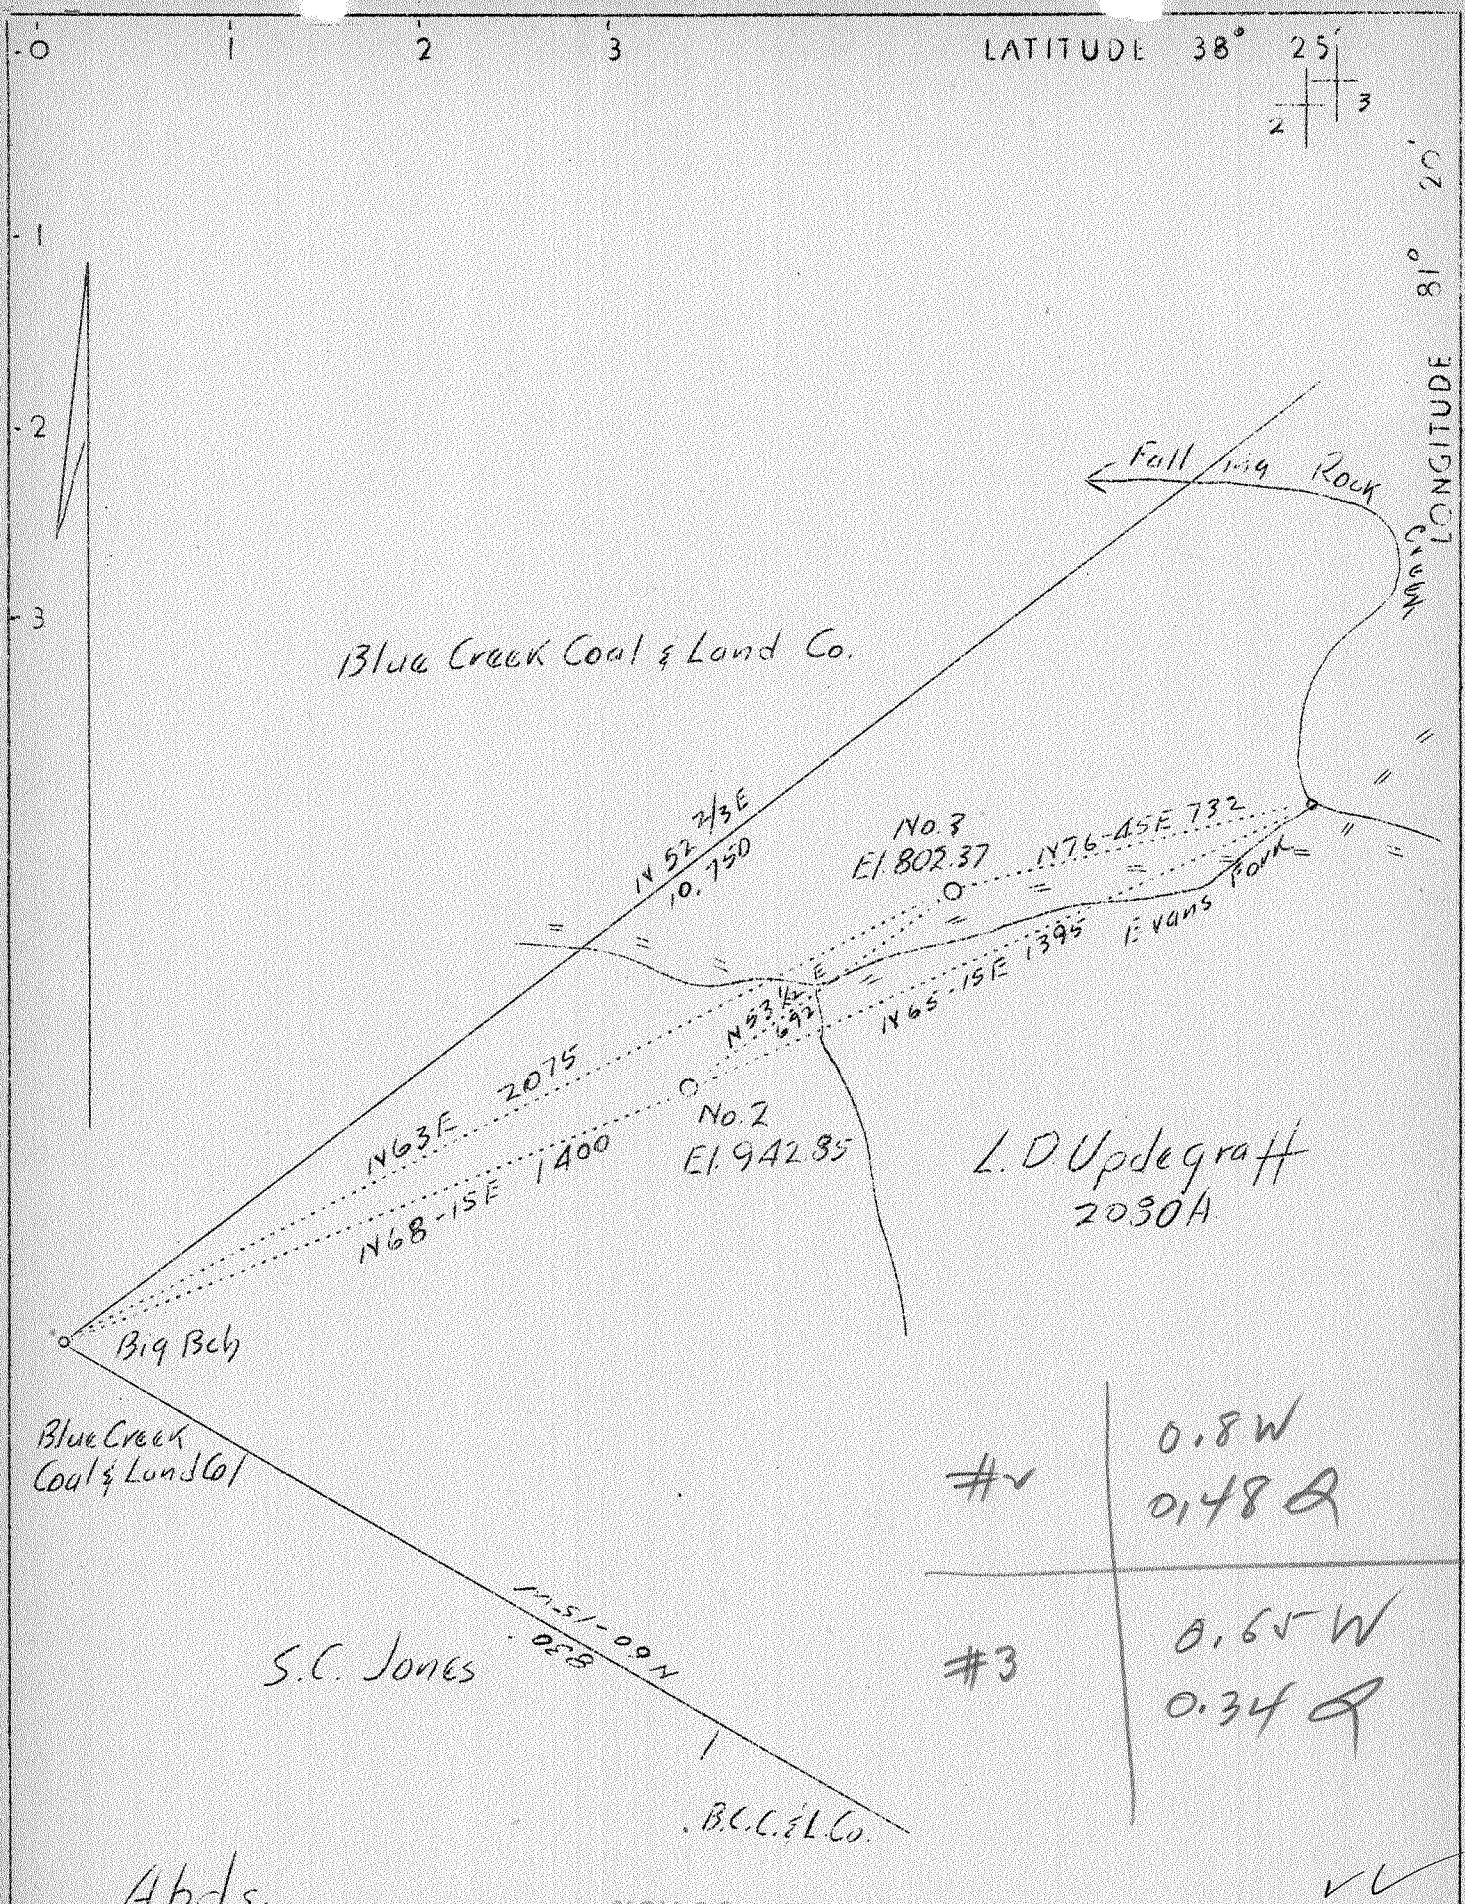 0 1 2 3 LATITUDE 38° 25'
3
2
LONGITUDE 81° 20'
1
2
3
Falling Rock Creek
Blue Creek Coal & Land Co.
N 52 2/3 E
10.750
No. 3
El. 802.37
N76-45E 732
Evans Fork
N65-15E 1395
N53 1/2 E
692
N63E 2075
N68-15E 1400
No. 2
El. 942.85
L. D. Updegraff
2030A
Big Bch
Blue Creek
Coal & Land Co
N 60-15 W
830
S.C. Jones
B.C.C. & L. Co.
#2
0.8 W
0.48 S
#3
0.65 W
0.34 S
Abds.